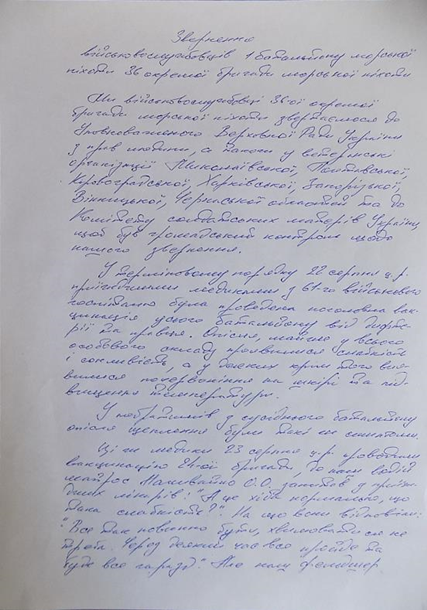 Звернення
військовослужбовців 1 батальйону морської
піхоти 36 окремої бригади морської піхоти
Ми військовослужбовці 36-ої окремої
бригади морської піхоти звертаємося до
Уповноваженого Верховної Ради України
з прав людини, а також у ветеранські
організації Миколаївської, Полтавської,
Кіровоградської, Харківської, Запорізької,
Вінницької, Черкаської областей та до
Комітету солдатських матерів України
щоб був громадський контроль щодо
нашого звернення.
У терміновому порядку 22 серпня ц.р.
приїхавшими медиками з 61-го військового
госпіталю була проведена поголовна вак-
цинація усього батальйону від дифте-
рії та правця. Опісля, майже у всього
особового складу проявилися слабкість
і сонливість, а у деяких крім того вия-
вилися почервоніння на шкірі та під-
вищення температури.
У побратимів з сусіднього батальйону
опісля щеплення були такі ж симптоми.
Ці ж медики 23 серпня ц.р. проводили
вакцинацію 24-ої бригади. До
матрос Наливайко О.О. запитав у приїж-
джих лікарів: "А це хіба нормально, що
така слабкість?" На що вони відповіли:
"Все так повинно бути, хвилюватися не
треба. Через деякий час все пройде та
буде все гаразд". Але наш фельдшер